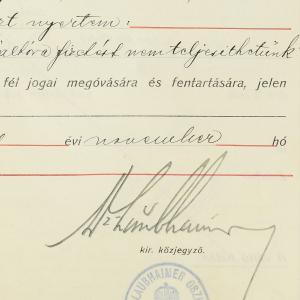 nyertem:
váltóra fizetést nem teljesíthetünk
fél jogai megóvására és fentartására, jelen
évi november hó
Dr. Laubhaimer
kir. közjegyző.
LAUBHAIMER OSZ